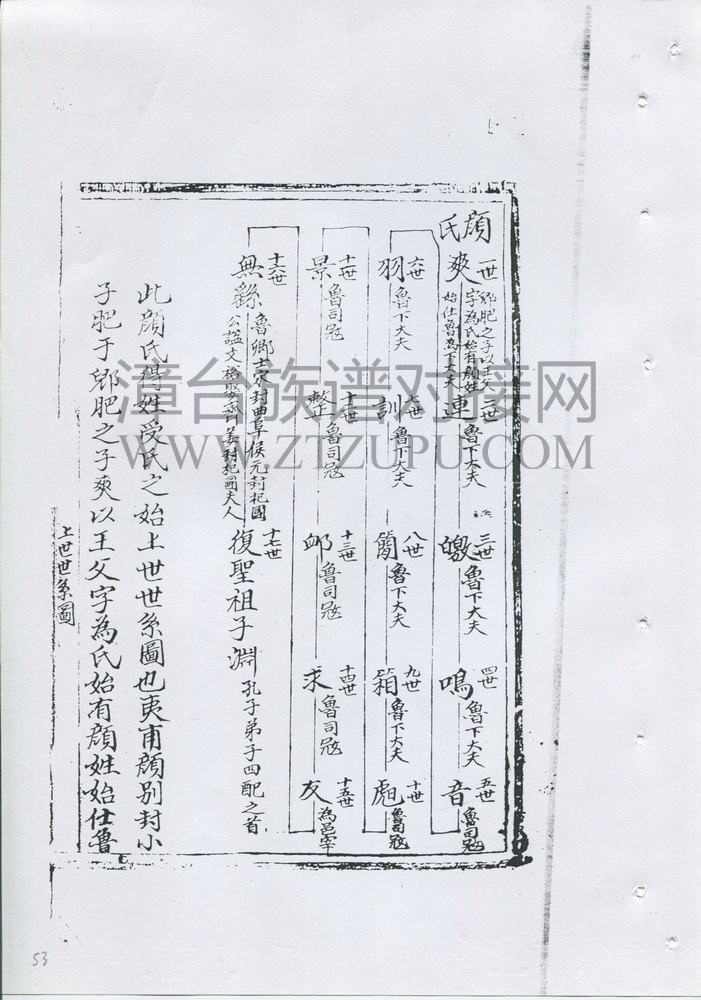 顏氏
一世
爽
郳肥之子以王父
字為氏始有顏姓
始仕魯為下大夫
二世
連
魯下大夫
三世
皦
魯下大夫
四世
鳴
魯下大夫
五世
音
魯司冦
六世
羽
魯下大夫
七世
訓
魯下大夫
八世
簡
魯下大夫
九世
箱
魯下大夫
十世
彪
魯司冦
十一世
景
魯司冦
十二世
整
魯司冦
十三世
邮
魯司冦
十四世
求
魯司冦
十五世
友
為邑宰
十六世
無繇
魯卿士宋封曲阜侯元封杞國
公謚文裕娶齊姜封杞國夫人
十七世
復聖祖子淵
孔子弟子四配之首
此顏氏得姓受氏之始上世世系圖也夷甫顏別封小
子肥于郳肥之子爽以王父字為氏始有顏姓始仕魯
上世世系圖
漳台族谱对接网
WWW.ZTZUPU.COM
53